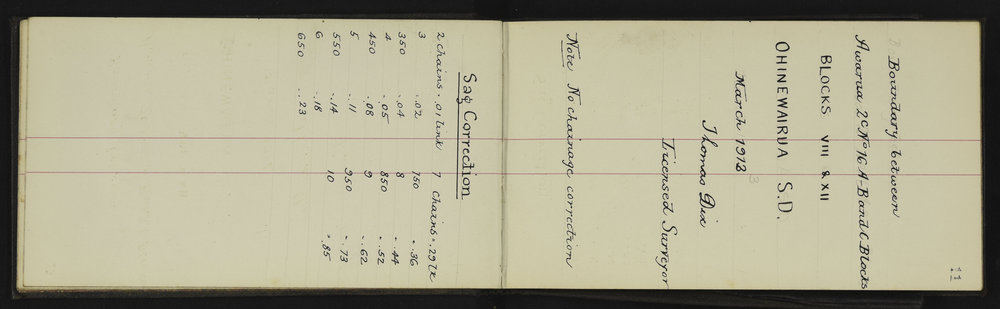 11
Boundary between
Awarua 2C No 16 A-B and C. Blocks
BLOCKS VIII & XII
OHINEWAIRUA S.D.
March 1913
Thomas Dix
Licensed Surveyor
Note No chainage correction
Sag Correction
2 chains = .01 link 7 chains = .29 lk
3 .02 750 .36
350 .04 8 .44
4 .05 850 .52
450 .08 9 .62
5 .11 950 .73
550 .14 10 .85
6 .18
650 .23